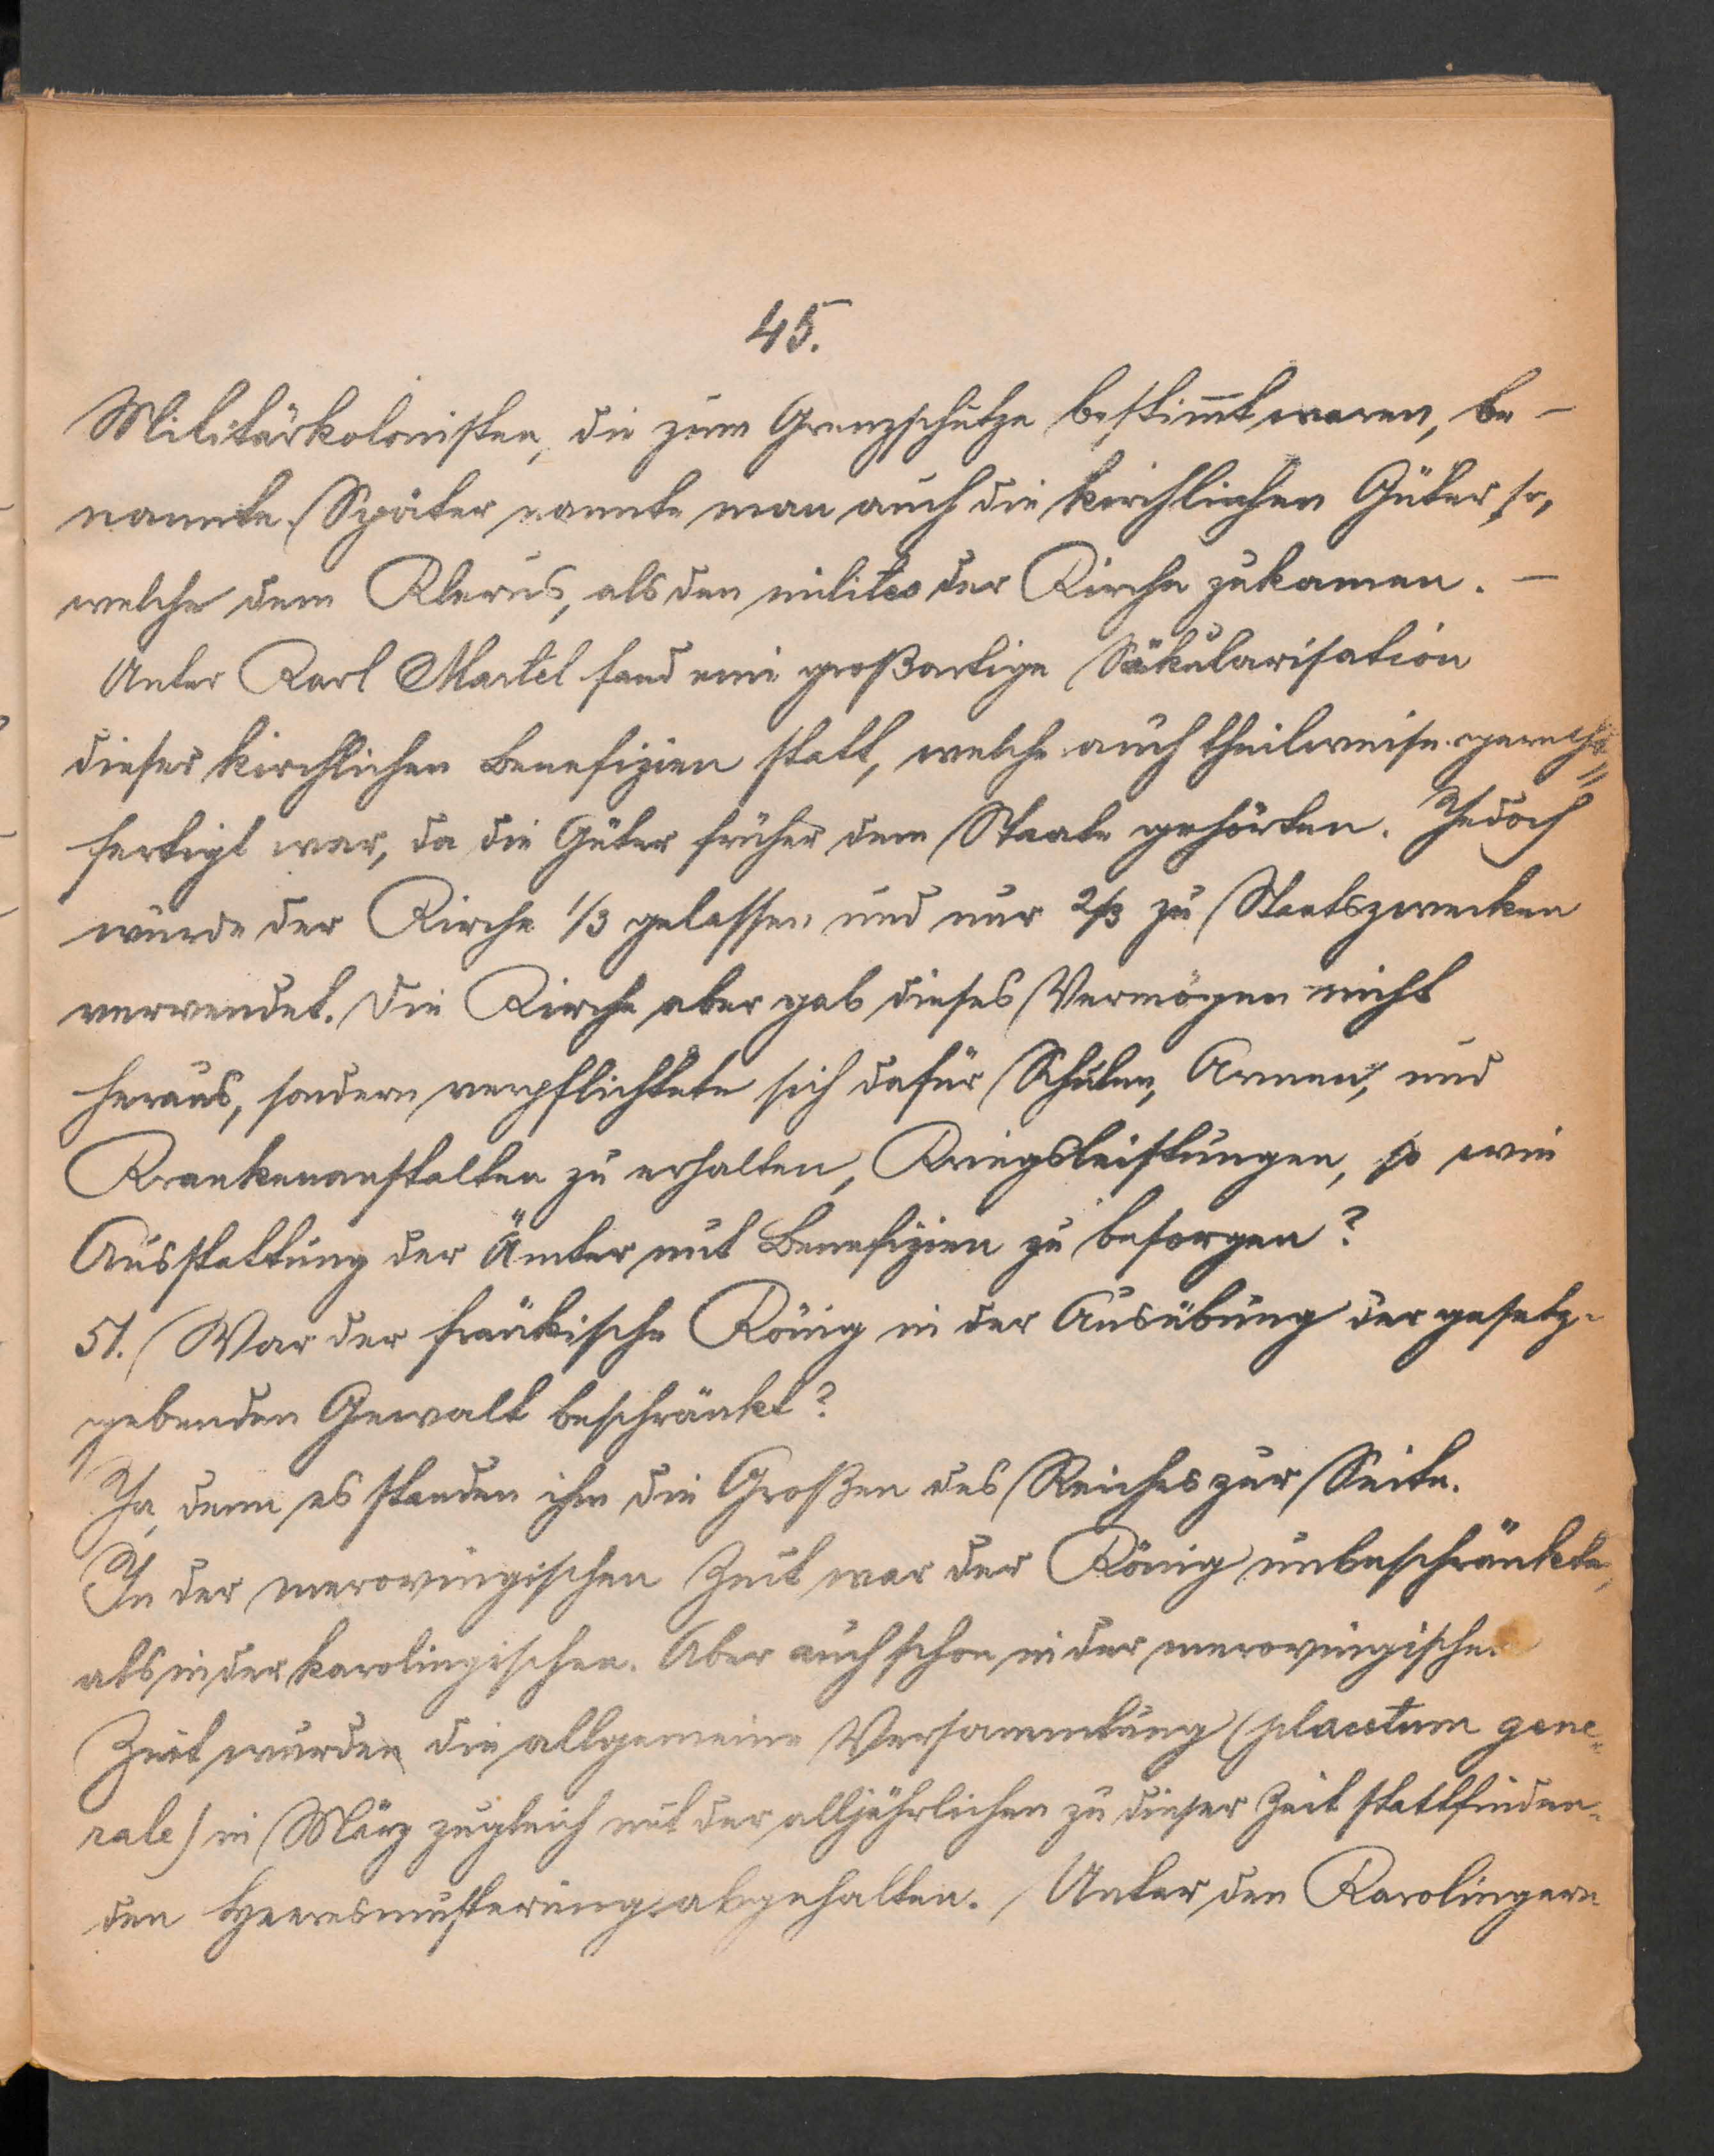 45.
Militärkolonisten, die zum Grenzschutze bestim̅t waren, be-
nannte. Später nannte man auch die kirchlichen Güter so,
welche dem Klerus, als den milites der Kirche zukamen. –
Unter Karl Martel fand eine großartige Säkularisation
dieser kirchlichen Benefizien statt, welche auch theilweise gerecht=
fertigt war, da die Güter früher dem Staate gehörten. Jedoch
wurde der Kirche 1/3 gelassen und nur 2/3 zu Staatszwecken
verwendet. Die Kirche aber gab dieses Vermögen nicht
heraus, sondern verpflichtete sich dafür Schulen, Armen, und
Krankenanstalten zu erhalten, Kriegsleistungen, so wie
Ausstattung der Ämter mit Benefizien zu besorgen?
51. War der fränkische König in der Ausübung der gesetz-
gebenden Gewalt beschränkt?
Ja, denn es standen ihm die Großen des Reiches zur Seite.
In der merovingischen Zeit war der König unbeschränkte,
als in der karolingischen. Aber auch schon in der merovingischen
Zeit wurden die allgemeine Versammlung (placetum gene=
rale) in März zugleich mit der alljährlichen zu dieser Zeit stattfinden-
den Heeresmusterung abgehalten. Unter den Karolingern